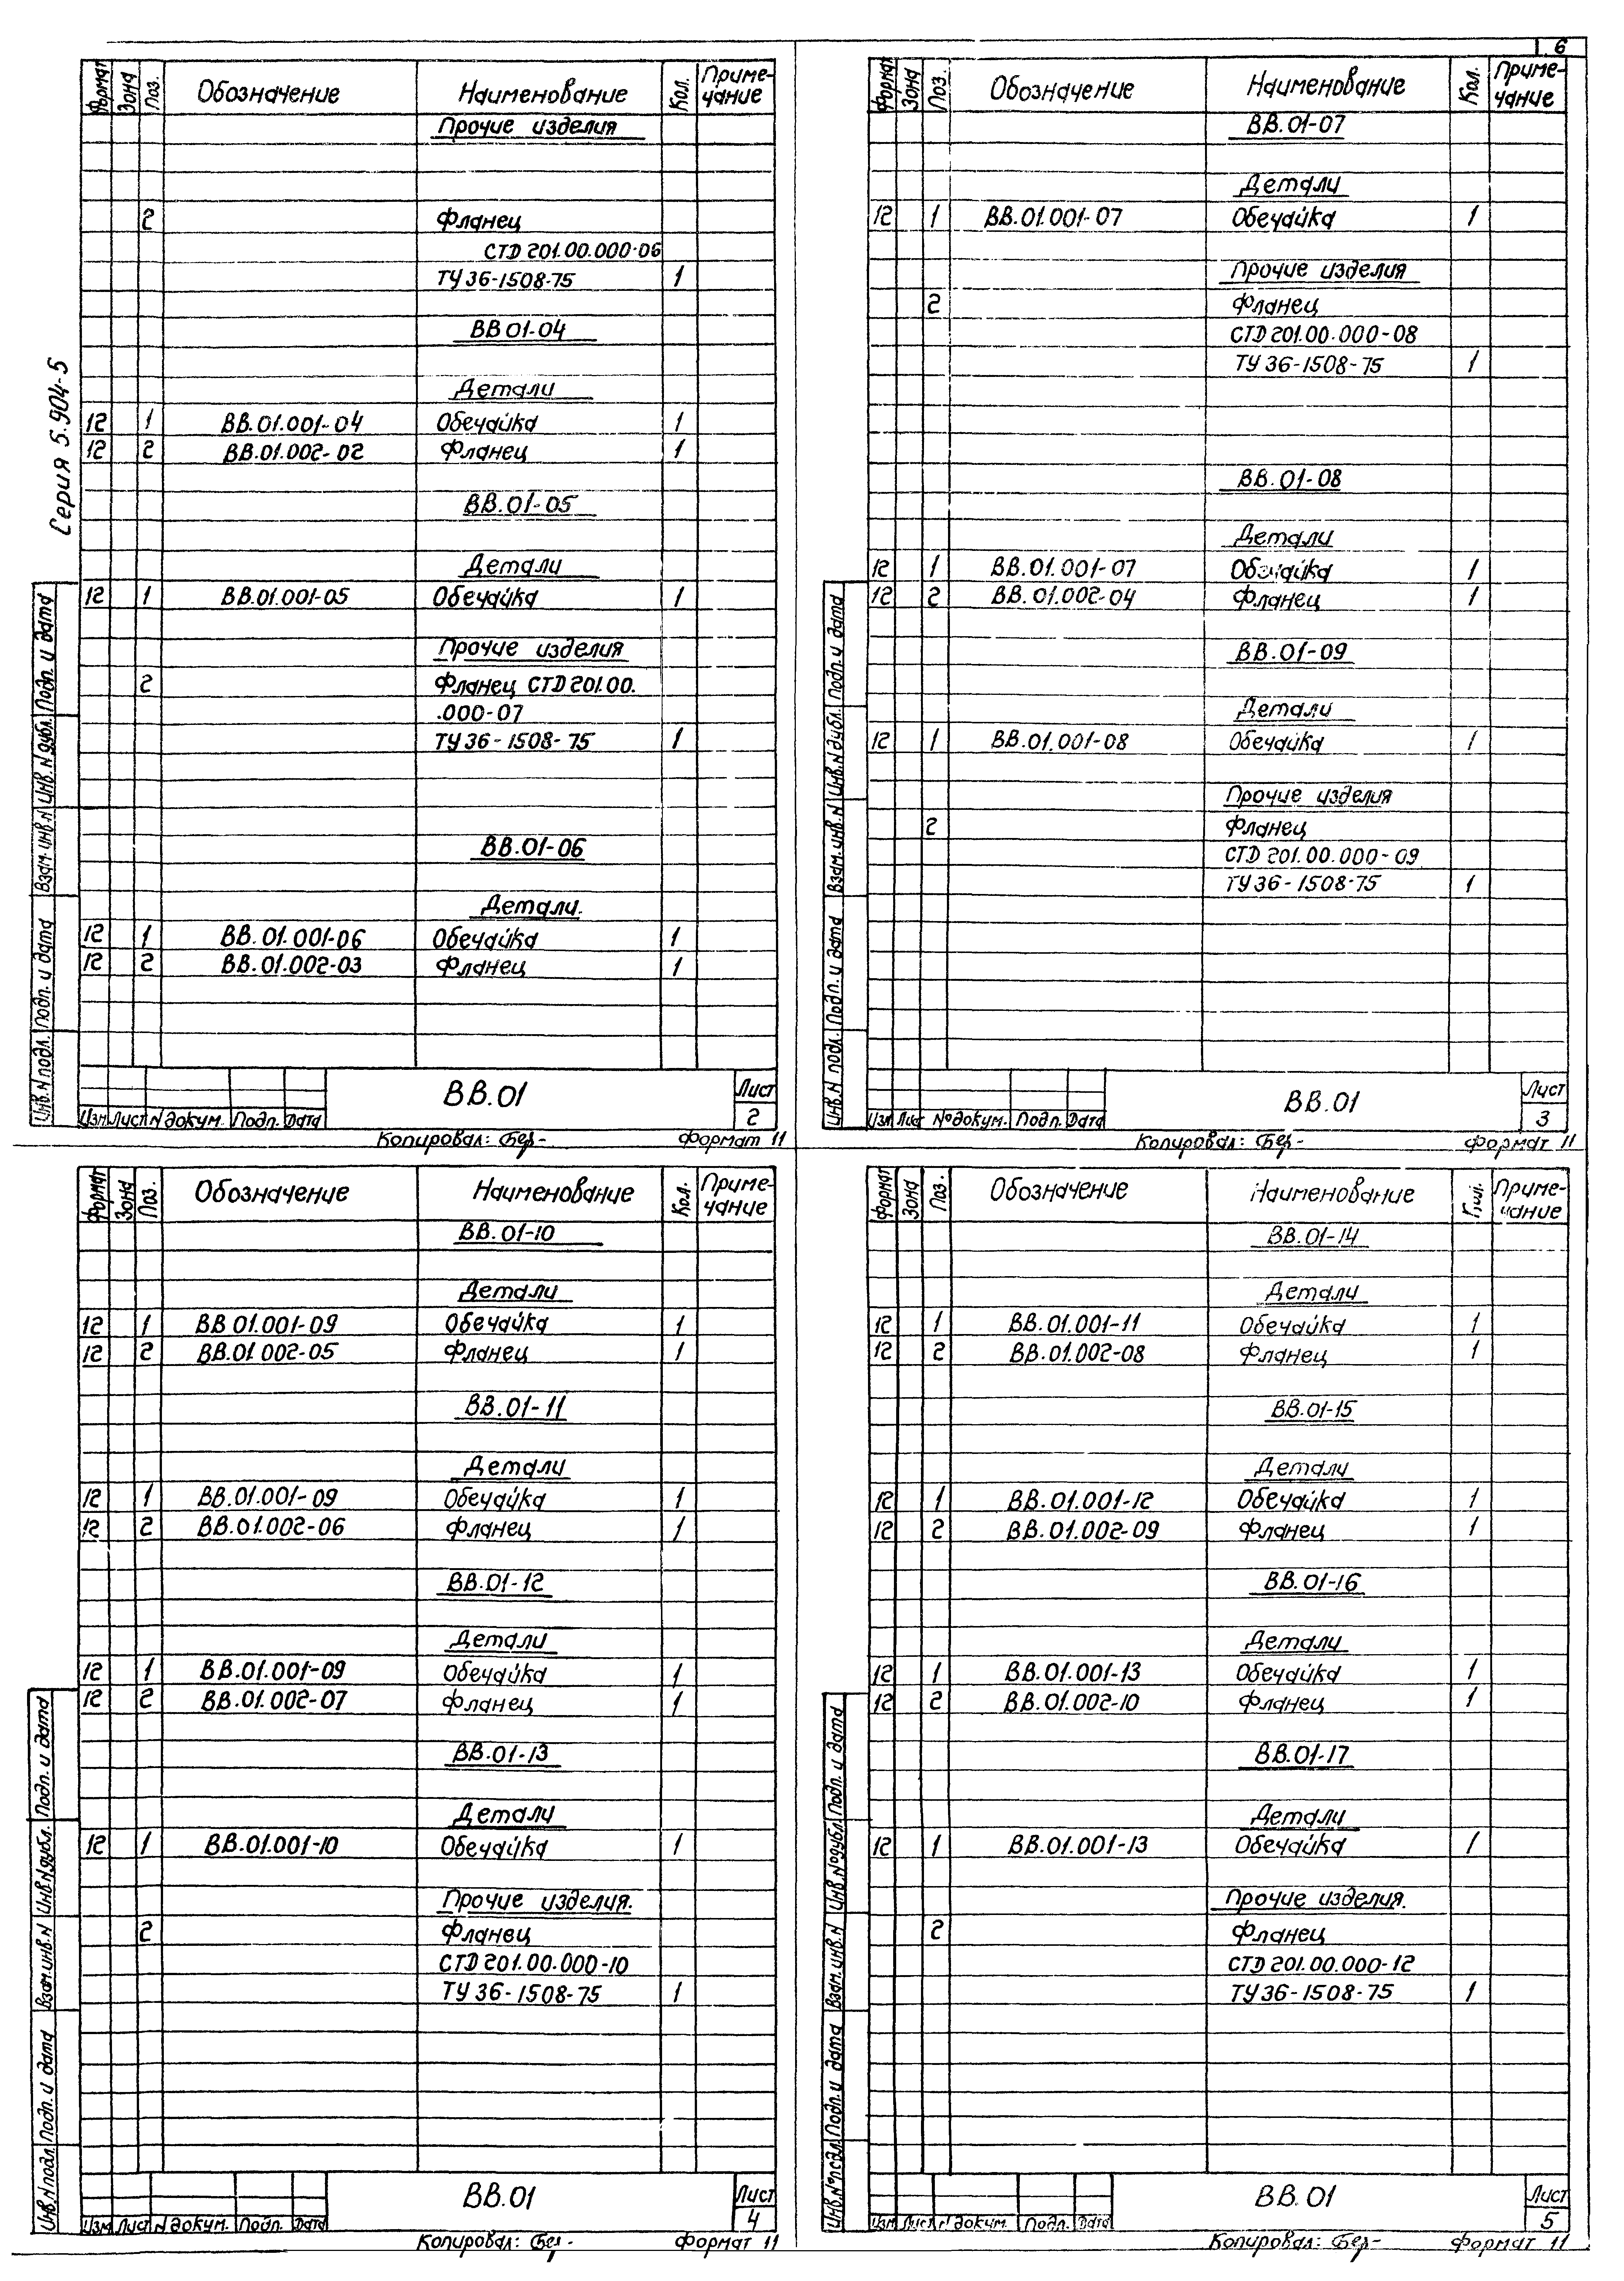 6
Серия 5.904-5
Формат Зона Поз. Обозначение Наименование Кол. Приме-
чание
Прочие изделия
2 Фланец
СТД 201.00.000-06
ТУ 36-1508-75 1
ВВ 01-04
Детали
12 1 ВВ.01.001-04 Обечайка 1
12 2 ВВ.01.002-02 Фланец 1
ВВ.01-05
Детали
12 1 ВВ.01.001-05 Обечайка 1
Прочие изделия
2 Фланец СТД 201.00.
.000-07
ТУ 36-1508-75 1
ВВ.01-06
Детали.
12 1 ВВ.01.001-06 Обечайка 1
12 2 ВВ.01.002-03 Фланец 1
Инв.N подл. Подп. и дата Взам.инв.N Инв.N дубл. Подп. и дата
ВВ.01 Лист
Изм Лист N докум. Подп. Дата 2
Копировал: Бер- Формат 11
Формат Зона Поз. Обозначение Наименование Кол. Приме-
чание
ВВ.01-07
Детали
12 1 ВВ.01.001-07 Обечайка 1
Прочие изделия
2 Фланец
СТД 201.00.000-08
ТУ 36-1508-75 1
ВВ.01-08
Детали
12 1 ВВ.01.001-07 Обечайка 1
12 2 ВВ.01.002-04 Фланец 1
ВВ.01-09
Детали
12 1 ВВ.01.001-08 Обечайка 1
Прочие изделия
2 Фланец
СТД 201.00.000-09
ТУ 36-1508-75 1
Инв.N подл. Подп. и дата Взам.инв.N Инв.N дубл. Подп. и дата
ВВ.01 Лист
Изм Лист №докум. Подп. Дата 3
Копировал: Бер- Формат 11
Формат Зона Поз. Обозначение Наименование Кол. Приме-
чание
ВВ.01-10
Детали
12 1 ВВ 01.001-09 Обечайка 1
12 2 ВВ.01 002-05 Фланец 1
ВВ.01-11
Детали
12 1 ВВ.01.001-09 Обечайка 1
12 2 ВВ.01.002-06 Фланец 1
ВВ.01-12
Детали
12 1 ВВ.01.001-09 Обечайка 1
12 2 ВВ.01.002-07 Фланец 1
ВВ.01-13
Детали
12 1 ВВ.01.001-10 Обечайка 1
Прочие изделия.
2 Фланец
СТД 201.00.000-10
ТУ 36-1508-75 1
Инв.N подл Подп. и дата Взам.инв.N Инв.N дубл. Подп. и дата
ВВ.01 Лист
Изм Лист N докум. Подп. Дата 4
Копировал: Бер- Формат 11
Формат Зона Поз. Обозначение Наименование Кол. Приме-
чание
ВВ.01-14
Детали
12 1 ВВ.01.001-11 Обечайка 1
12 2 ВВ.01.002-08 Фланец 1
ВВ.01-15
Детали
12 1 ВВ.01.001-12 Обечайка 1
12 2 ВВ.01.002-09 Фланец 1
ВВ.01-16
Детали
12 1 ВВ.01.001-13 Обечайка 1
12 2 ВВ.01.002-10 Фланец 1
ВВ.01-17
Детали
12 1 ВВ.01.001-13 Обечайка 1
Прочие изделия.
2 Фланец
СТД 201.00.000-12
ТУ 36-1508-75 1
Инв.№подл Подп. и дата Взам.инв.N Инв.№дубл Подп. и дата
ВВ.01 Лист
Изм Лист N докум. Подп. Дата 5
Копировал: Бер- Формат 11